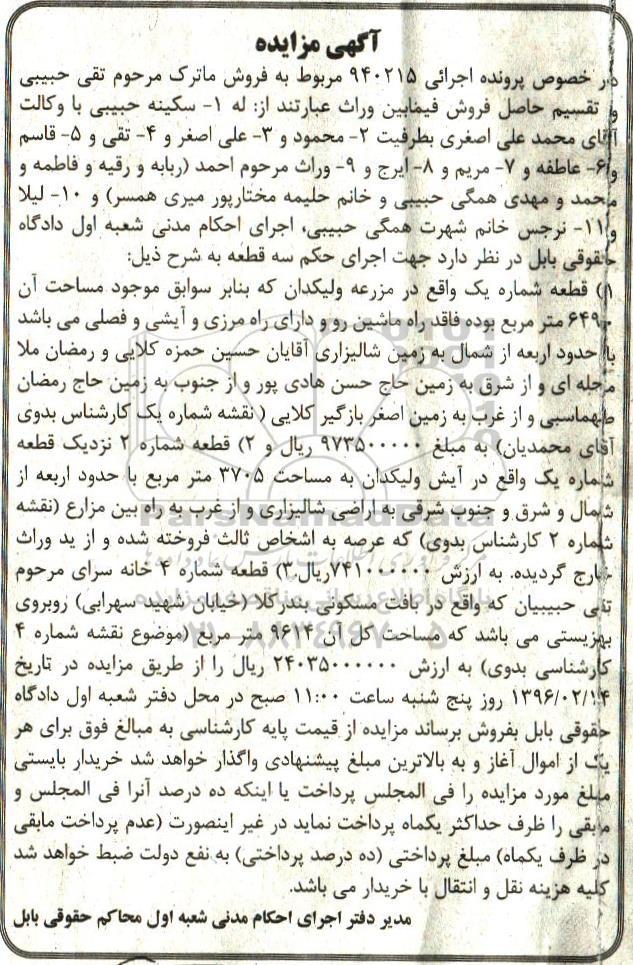 آگهی مزایده
در خصوص پرونده اجرائی ۹۴۰۲۱۵ مربوط به فروش ماترک مرحوم تقی حبیبی
و تقسیم حاصل فروش فیمابین وراث عبارتند از: له ۱- سکینه حبیبی با وکالت
آقای محمد علی اصغری بطرفیت ۲- محمود و ۳- علی اصغر و ۴- تقی و ۵- قاسم
و ۶- عاطفه و ۷- مریم و ۸- ایرج و ۹- وراث مرحوم احمد (ربابه و رقیه و فاطمه و
محمد و مهدی همگی حبیبی و خانم حلیمه مختارپور میری همسر) و ۱۰- لیلا
و ۱۱- نرجس خانم شهرت همگی حبیبی، اجرای احکام مدنی شعبه اول دادگاه
حقوقی بابل در نظر دارد جهت اجرای حکم سه قطعه به شرح ذیل:
۱) قطعه شماره یک واقع در مزرعه ولیکدان که بنابر سوابق موجود مساحت آن
۶۴۹۰ متر مربع بوده فاقد راه ماشین رو و دارای راه مرزی و آیشی و فصلی می باشد
با حدود اربعه از شمال به زمین شالیزاری آقایان حسین حمزه کلایی و رمضان ملا
محله ای و از شرق به زمین حاج حسن هادی پور و از جنوب به زمین حاج رمضان
طهماسبی و از غرب به زمین اصغر بازگیر کلایی (نقشه شماره یک کارشناس بدوی
آقای محمدیان) به مبلغ ۹۷۳۵۰۰۰۰۰ ریال و ۲) قطعه شماره ۲ نزدیک قطعه
شماره یک واقع در آیش ولیکدان به مساحت ۳۷۰۵ متر مربع با حدود اربعه از
شمال و شرق و جنوب شرقی به اراضی شالیزاری و از غرب به راه بین مزارع (نقشه
شماره ۲ کارشناس بدوی) که عرصه به اشخاص ثالث فروخته شده و از ید وراث
خارج گردیده. به ارزش ۷۴۱۰۰۰۰۰۰ریال.۳) قطعه شماره ۴ خانه سرای مرحوم
تقی حبیبیان که واقع در بافت مسکونی بندرکلا (خیابان شهید سهرابی) روبروی
بهزیستی می باشد که مساحت کل آن ۹۶۱۴ متر مربع (موضوع نقشه شماره ۴
کارشناسی بدوی) به ارزش ۲۴۰۳۵۰۰۰۰۰۰ ریال را از طریق مزایده در تاریخ
۱۳۹۶/۰۲/۱۴ روز پنج شنبه ساعت ۱۱:۰۰ صبح در محل دفتر شعبه اول دادگاه
حقوقی بابل بفروش برساند مزایده از قیمت پایه کارشناسی به مبالغ فوق برای هر
یک از اموال آغاز و به بالاترین مبلغ پیشنهادی واگذار خواهد شد خریدار بایستی
مبلغ مورد مزایده را فی المجلس پرداخت یا اینکه ده درصد آنرا فی المجلس و
مابقی را ظرف حداکثر یکماه پرداخت نماید در غیر اینصورت (عدم پرداخت مابقی
در ظرف یکماه) مبلغ پرداختی (ده درصد پرداختی) به نفع دولت ضبط خواهد شد
کلیه هزینه نقل و انتقال با خریدار می باشد.
مدیر دفتر اجرای احکام مدنی شعبه اول محاکم حقوقی بابل
ParsNamadData